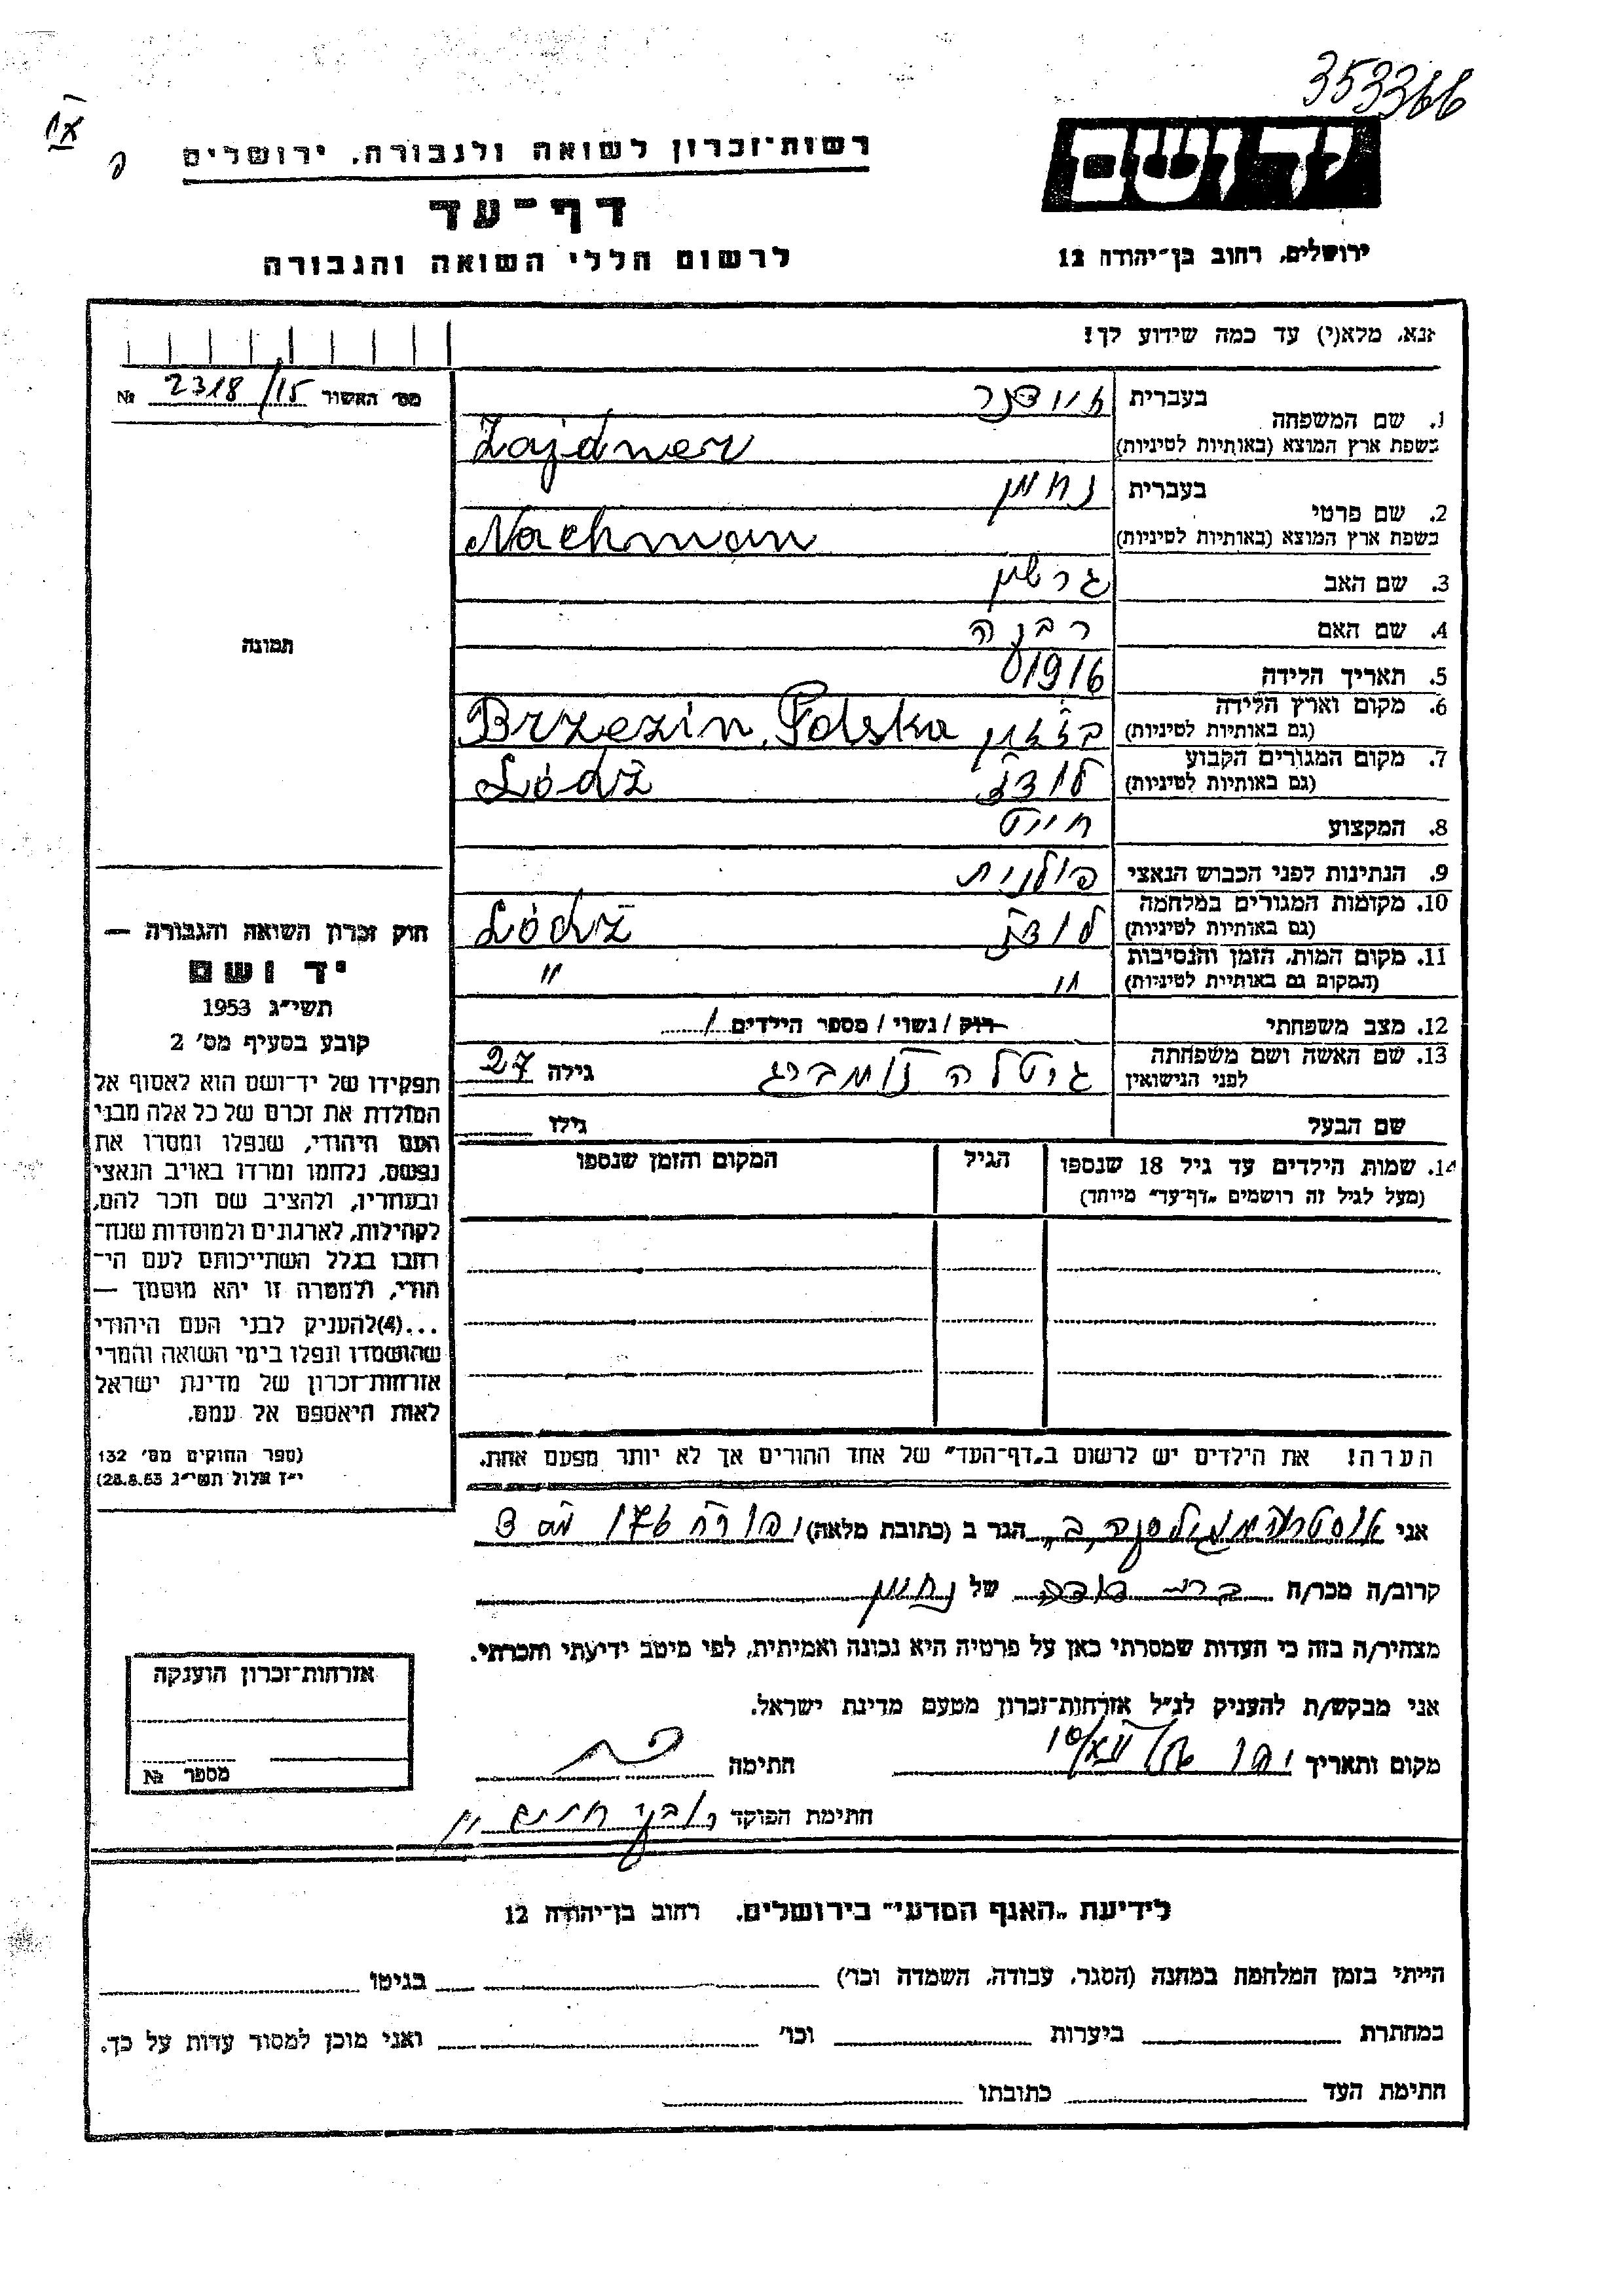 353366
רשות־זכרון לשואה ולגבורה, ירושלים
דף־עד
לרשום חללי השואה והגבורה
יד ושם
ירושלים, רחוב בן־יהודה 12
אנא, מלא(י) עד כמה שידוע לך!
מס׳ האשור 2318/15 №
1. שם המשפחה
בעברית זיידנר
בשפת ארץ המוצא (באותיות לטיניות) Zajdner
2. שם פרטי
בעברית נחמן
בשפת ארץ המוצא (באותיות לטיניות) Nachman
3. שם האב גרשון
4. שם האם
5. תאריך הלידה 1916
6. מקום וארץ הלידה
(גם באותיות לטיניות) Brzezin, Polska
7. מקום המגורים הקבוע
(גם באותיות לטיניות) לודז׳ Łódż
8. המקצוע חייט
9. הנתינות לפני הכבוש הנאצי פולנית
10. מקומות המגורים במלחמה
(גם באותיות לטיניות) לודז׳ Łódż
11. מקום המות, הזמן והנסיבות
(המקום גם באותיות לטיניות) " "
12. מצב משפחתי רוק / נשוי / מספר הילדים 1
13. שם האשה ושם משפחתה
לפני הנישואין גיטלה זומברג גילה 27
שם הבעל גילו
14. שמות הילדים עד גיל 18 שנספו הגיל המקום והזמן שנספו
(מעל לגיל זה רושמים „דף־עד״ מיוחד)
הערה! את הילדים יש לרשום ב„דף־העד״ של אחד ההורים אך לא יותר מפעם אחת.
תמונה
חוק זכרון השואה והגבורה —
יד ושם
תשי״ג 1953
קובע בסעיף מס׳ 2
תפקידו של יד־ושם הוא לאסוף אל
המולדת את זכרם של כל אלה מבני
העם היהודי, שנפלו ומסרו את
נפשם, נלחמו ומרדו באויב הנאצי
ובעוזריו, ולהציב שם וזכר להם,
לקהילות, לארגונים ולמוסדות שנח־
רבו בגלל השתייכותם לעם הי־
הודי, ולמטרה זו יהא מוסמך —
...(4)להעניק לבני העם היהודי
שהושמדו ונפלו בימי השואה והמרי
אזרחות־זכרון של מדינת ישראל
לאות היאספם אל עמם.
(ספר החוקים מס׳ 132
י״ז אלול תשי״ג 28.8.53)
אני הגר ב (כתובת מלאה)
קרוב/ה מכר/ה של נחמן
מצהיר/ה בזה כי העדות שמסרתי כאן על פרטיה היא נכונה ואמיתית, לפי מיטב ידיעתי והכרתי.
אני מבקש/ת להעניק לנ״ל אזרחות־זכרון מטעם מדינת ישראל.
מקום ותאריך חתימה
חתימת הפוקד
אזרחות־זכרון הוענקה
מספר №
לידיעת „האגף המדעי״ בירושלים, רחוב בן־יהודה 12
הייתי בזמן המלחמה במחנה (הסגר, עבודה, השמדה וכו׳) בגיטו
במחתרת ביערות וכו׳ ואני מוכן למסור עדות על כך.
חתימת העד כתובתו